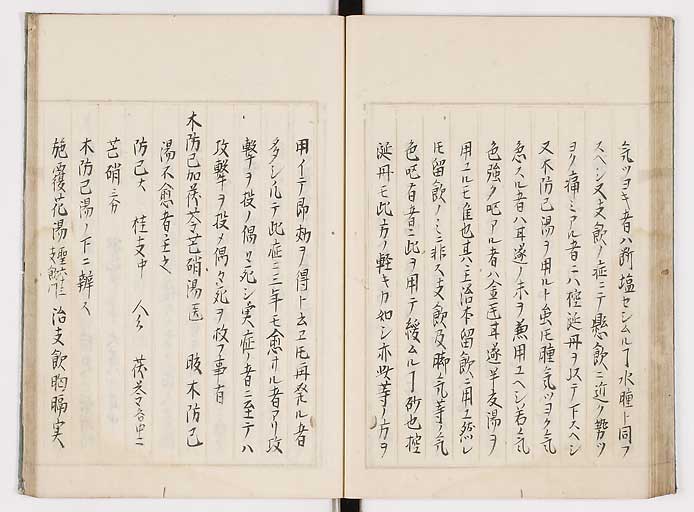 気ツヨキ者ハ断塩セシムルヿ水腫ト同フ
スヘシ又支飲ノ症ニテ懸飲ニ近ク勢ツ
ヨク痛ミアル者ニハ控涎丹ヲ以テ下スヘシ
又木防已湯ヲ用ルト虽𪜈腫気ツヨク気
急スル者ハ甘遂ノ末ヲ兼用ユヘシ若気
色強ク咳アル者ハ金匱甘遂半夏湯ヲ
用ユルモ佳也其ハ主治本留飲ニ用ユ然レ
𪜈留飲ノミニ非ス支飲及脚気等ノ気
色咳有者ニ此ヲ用テ緩ムルヿ妙也控
涎丹モ此方ノ軽キカ如シ亦此等ノ方ヲ
用イテ即効ヲ得ト云ヱ𪜈再発ル者
多シ凡テ此症ニ三年モ愈サル者アリ攻
撃ヲ投ノ偶々死シ実症ノ者ニ至テハ
攻撃ヲ投メ偶々死ヲ救フ事有
木防已加茯苓芒硝湯匱 咳木防已
湯不愈者主之
防已大 桂支中 人小 茯苓各中二
芒硝三分
木防已湯ノ下ニ辨ス
施覆花湯 治支飲胸膈実